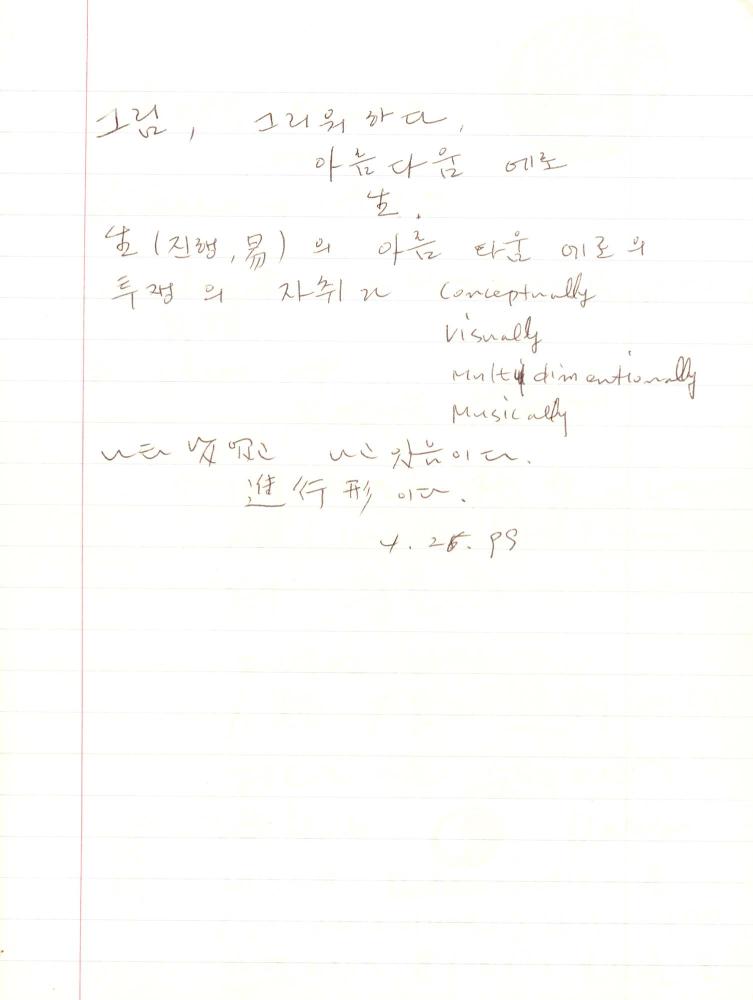 그림, 그리워하다,
아름다움 에로
生.
生(진행,易)의 아름 다움 에로의
투쟁의 자취가 Conceptually
Visually
Multi dimentionally
Musically
나타 나고 있음이다.
進行形이다.
4. 25. 99